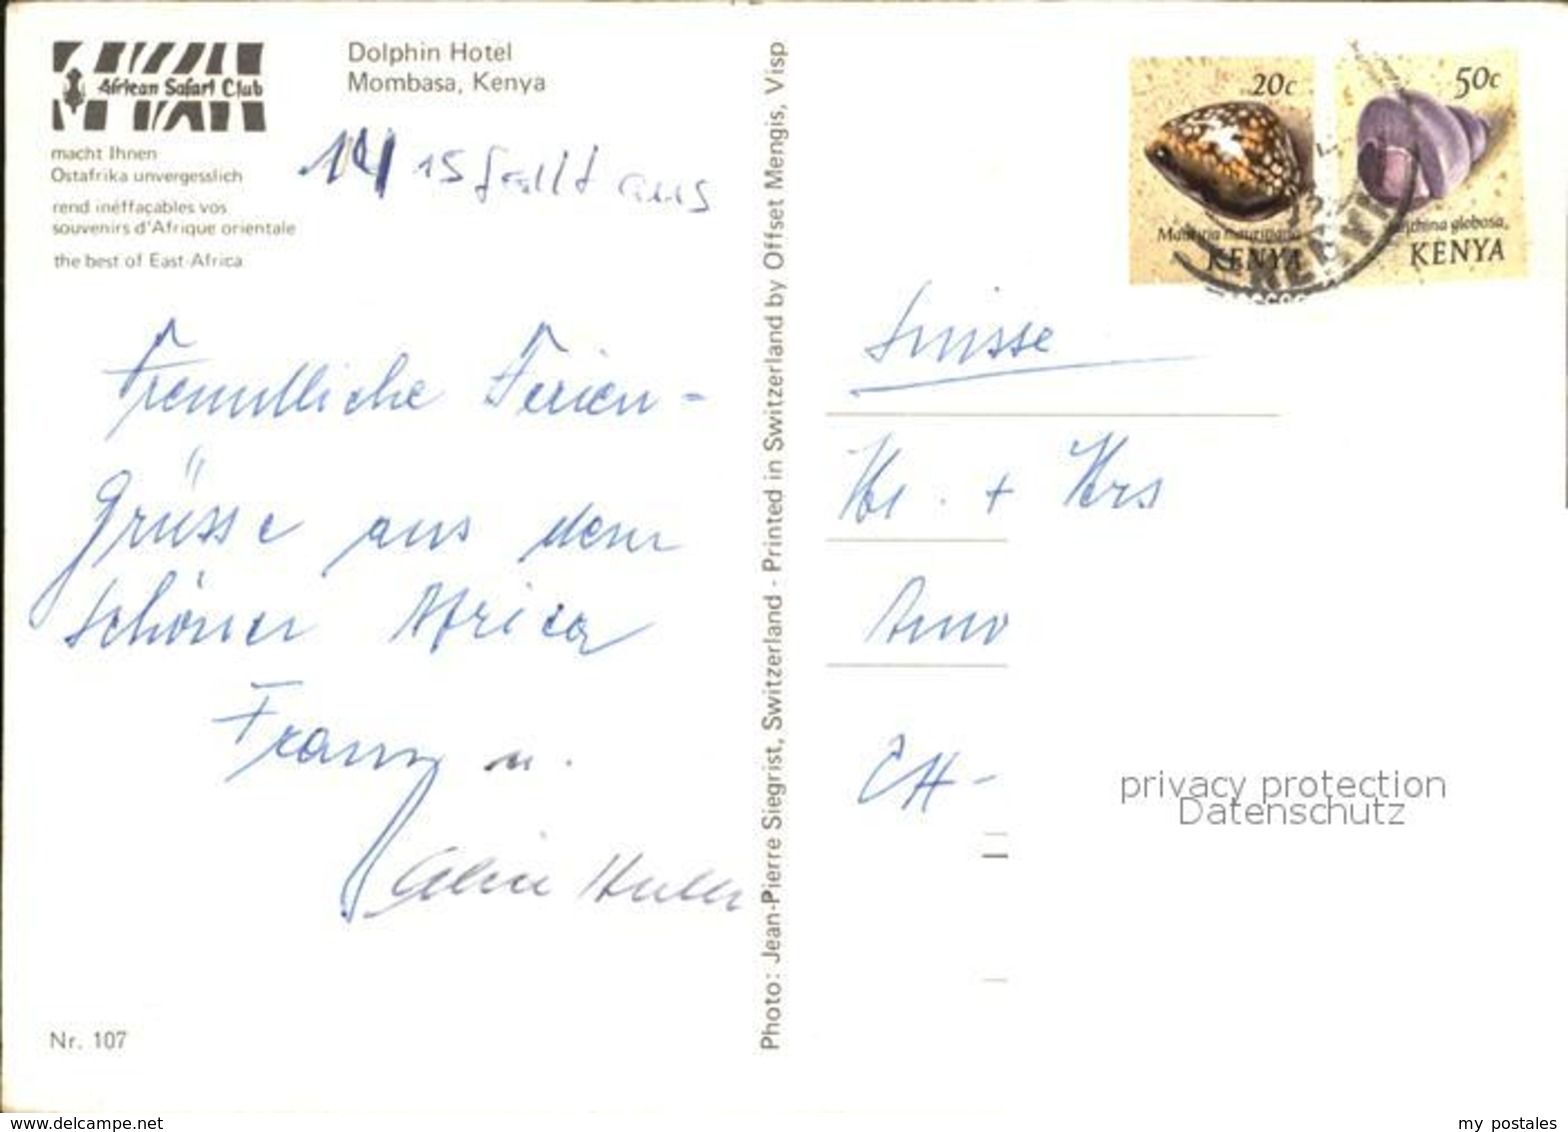 African Safari Club
macht Ihnen
Ostafrika unvergesslich
rend inéffaçables vos
souvenirs d'Afrique orientale
the best of East-Africa
Dolphin Hotel
Mombasa, Kenya
14 15 fällt aus
Freundliche Ferien-
Grüsse aus dem
schönen Africa
Franz u.
Alice
Nr. 107
Photo: Jean-Pierre Siegrist, Switzerland - Printed in Switzerland by Offset Mengis, Visp
20c
KENYA
50c
globosa,
KENYA
KENYA
Suisse
Hr. + Mrs
CH-
privacy protection
Datenschutz
www.delcampe.net
my_postales